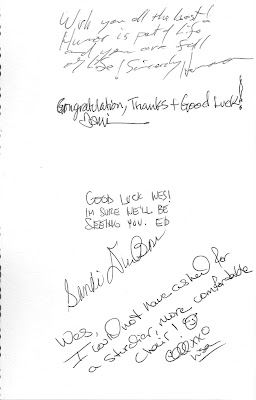 Wish you all the best!
Humor is part of life
and you are full
of life! Sincerely
Congratulation, Thanks + Good Luck!
GOOD LUCK WES!
IM SURE WE'LL BE
SEEING YOU. ED
Sandi
Wes,
I could not have asked for
a sturdier, more comfortable
chair! ☺
xxo
Lisa